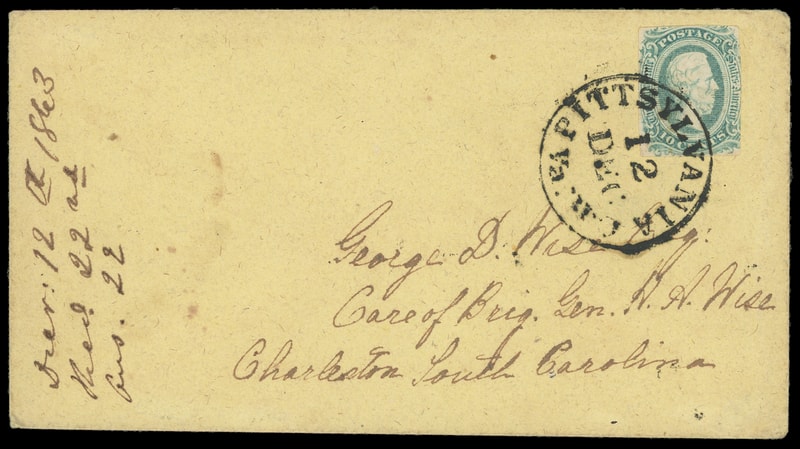 POSTAGE
10 CENTS
PITTSYLVANIA C.H. Va
12
DEC
George D. Wise Esq.
Care of Brig. Gen. H. A. Wise
Charleston South Carolina
Decr. 12th 1863
Recd. 22nd
Ans. 22